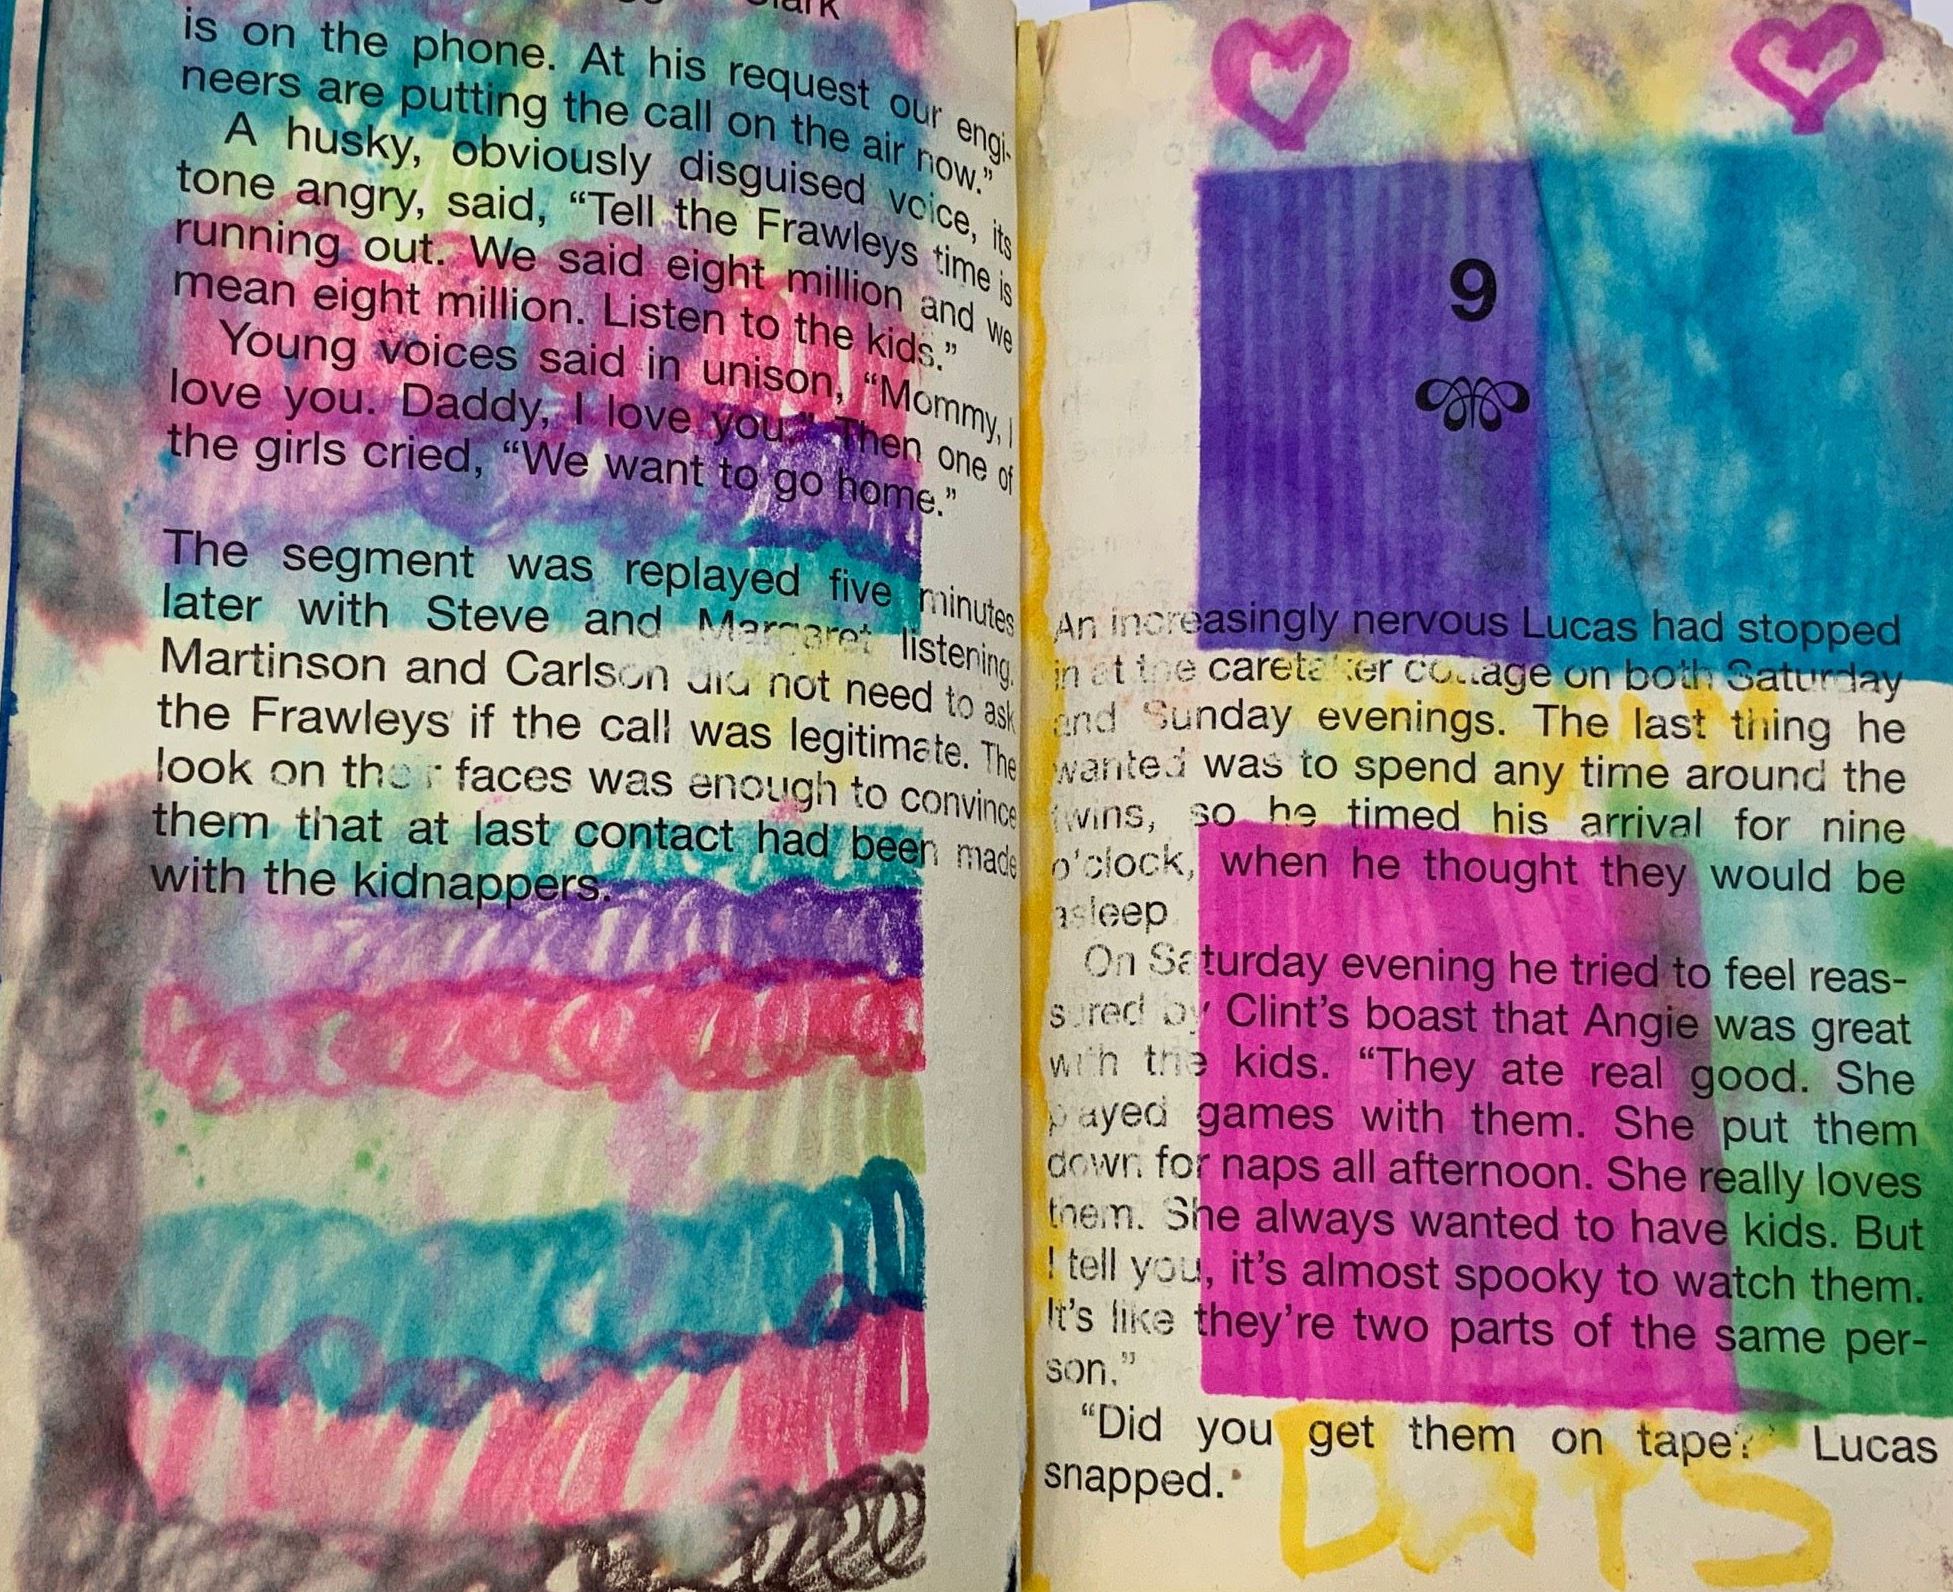 is on the phone. At his request our engi-
neers are putting the call on the air now.”
A husky, obviously disguised voice, its
tone angry, said, “Tell the Frawleys time is
running out. We said eight million and we
mean eight million. Listen to the kids.”
Young voices said in unison, “Mommy, I
love you. Daddy, I love you.” Then one of
the girls cried, “We want to go home.”
The segment was replayed five minutes
later with Steve and Margaret listening.
Martinson and Carlson did not need to ask
the Frawleys if the call was legitimate. The
look on their faces was enough to convince
them that at last contact had been made
with the kidnappers.
9
An increasingly nervous Lucas had stopped
in at the caretaker cottage on both Saturday
and Sunday evenings. The last thing he
wanted was to spend any time around the
twins, so he timed his arrival for nine
o’clock, when he thought they would be
asleep
On Saturday evening he tried to feel reas-
sured by Clint’s boast that Angie was great
with the kids. “They ate real good. She
played games with them. She put them
down for naps all afternoon. She really loves
them. She always wanted to have kids. But
I tell you, it’s almost spooky to watch them.
It’s like they’re two parts of the same per-
son.”
“Did you get them on tape?” Lucas
snapped.